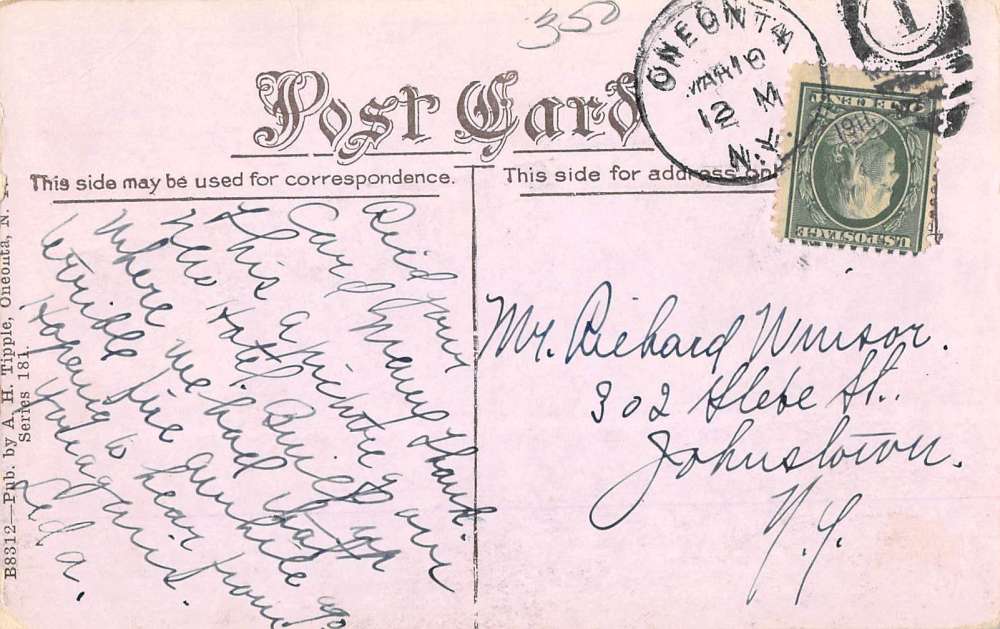 350
ONEONTA
MAR 10
12 M
N.Y.
1
1911
U.S. POSTAGE
ONE CENT
Post Card
This side may be used for correspondence.
This side for address only
B8312—Pub. by A. H. Tipple, Oneonta, N.
Series 181.
Reid your
Card Many Thanks
This a picture of our
New Hotel Built up
Where we had that
terrible fire awhile ago
Hopeing to hear from
You again.
Ted a.
Mr. Richard Winsor.
302 Glebe St.
Johnstown.
N.Y.